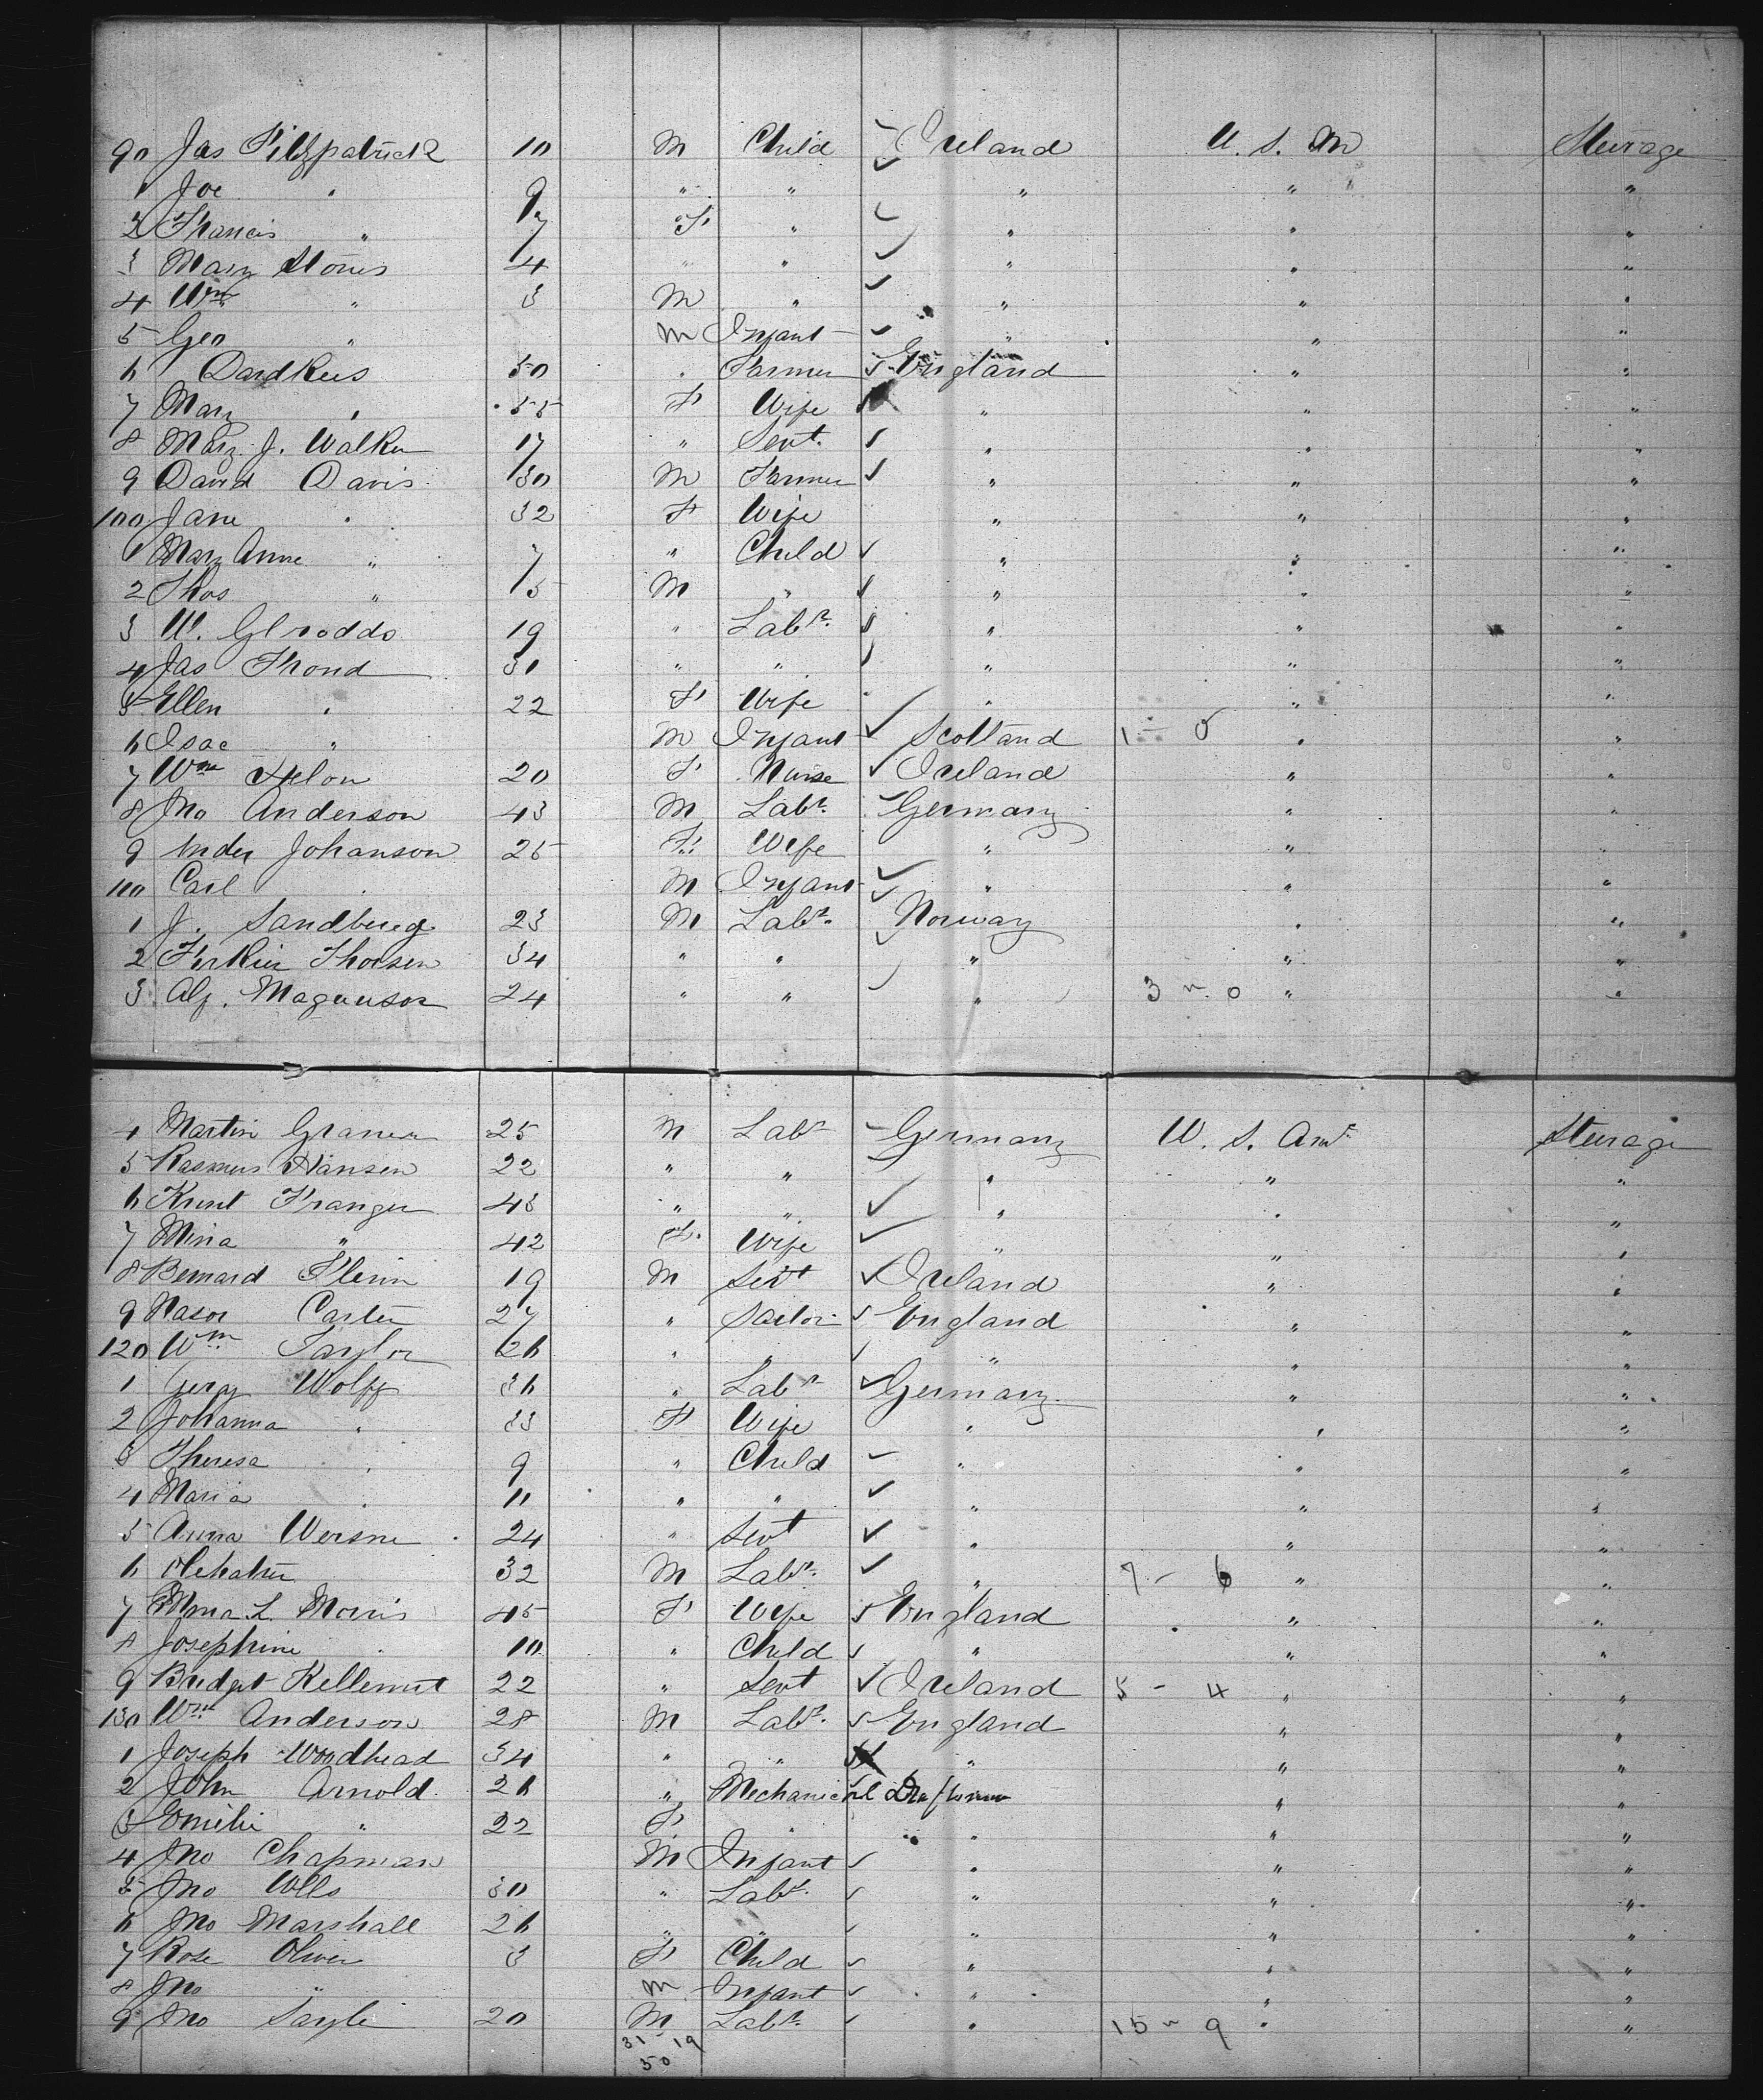 90 Jas Fitzpatrick 10 M Child Ireland U. S. M Steerage
1 Joe " 9 " " " " "
2 Francis " 7 F " " " "
3 Mary Stones 4 " " " " "
4 Wm " 3 M " " " "
5 Geo " M Infant " " "
6 Dardkus 50 Farmer England " "
7 Mary " 55 F Wife " " "
8 Mary J. Walker 17 " Servt. " " "
9 David Davis 30 M Farmer " " "
100 Jane " 32 F Wife " " "
1 Mary Anne " 7 " Child " " "
2 Thos " 5 M " " " "
3 W. 19 " Labr. " " "
4 Jas Thond 31 " " " " "
5 Ellen " 22 F Wife " " "
6 Isac " M Infant Scotland 1 - 0 " "
7 Wm 20 F Nurse Ireland " "
8 Jno Anderson 43 M Labr. Germany " "
9 Johanson 25 F Wife " " "
110 Carl " M Infant " " "
1 J. Sandberg 23 M Labr. Norway " "
2 Thorsen 34 " " " " "
3 Alf. Magnuson 24 " " " 3 - 0 " "
4 Martin Graner 25 M Labr Germany U. S. Ama Steerage
5 Rasmus Hansen 22 " " " " "
6 Knut Franger 43 " " " " "
7 Mina " 42 F. Wife " " "
8 Bernard 19 M Servt Ireland " "
9 Nason Carter 27 " Sailor England " "
120 Wm Taylor 26 " " " " "
1 Georg Wolff 36 " Labr Germany " "
2 Johanna " 33 F Wife " " "
3 Theresa " 9 " Child " " "
4 Maria " 11 " " " " "
5 Anna Wersne 24 " Servt " " "
6 32 M Labr. " 7 - 6 " "
7 Emma L. Morris 45 F Wife England " "
8 Josephine " 10 " Child " " "
9 Bridget 22 " Servt Ireland 5 - 4 " "
130 Wm Anderson 28 M Labr. England " "
1 Joseph Woodhead 34 " " " " "
2 John Arnold 26 " Mechanical Draftsman " "
3 Emilie " 22 F " " " "
4 Jno Chapman M Infant " " "
5 Jno Wells 30 " Labr. " " "
6 Jno Marshall 26 " " " " "
7 Rose Oliver 3 F Child " " "
8 Jno " M Infant " " "
9 Jno 20 M Labr. " 15 - 9 " "
31 - 19
50